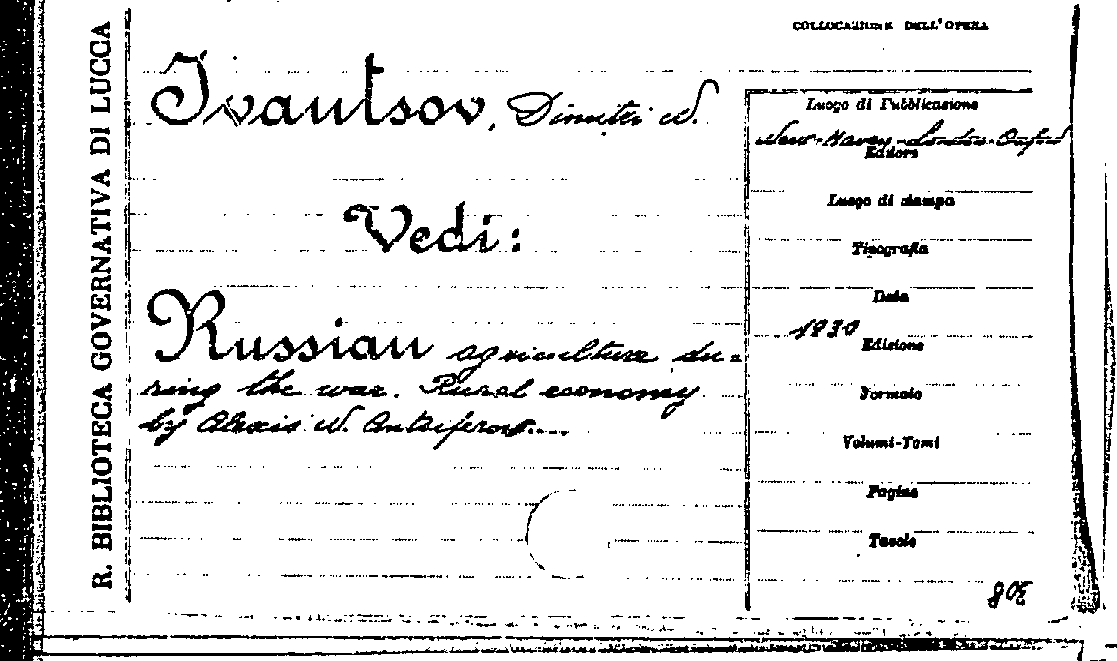 R. BIBLIOTECA GOVERNATIVA DI LUCCA
COLLOCAZIONE DELL'OPERA
Ivantsov, Dimitri N.
Vedi:
Russian agriculture du=
ring the war. Rural economy
by Alexis N. Antsiferov....
Luogo di Pubblicazione
New-Haven-London-Oxford
Editore
Luogo di stampa
Tipografia
Data
1930
Edizione
Formato
Volumi-Tomi
Pagine
Tavole